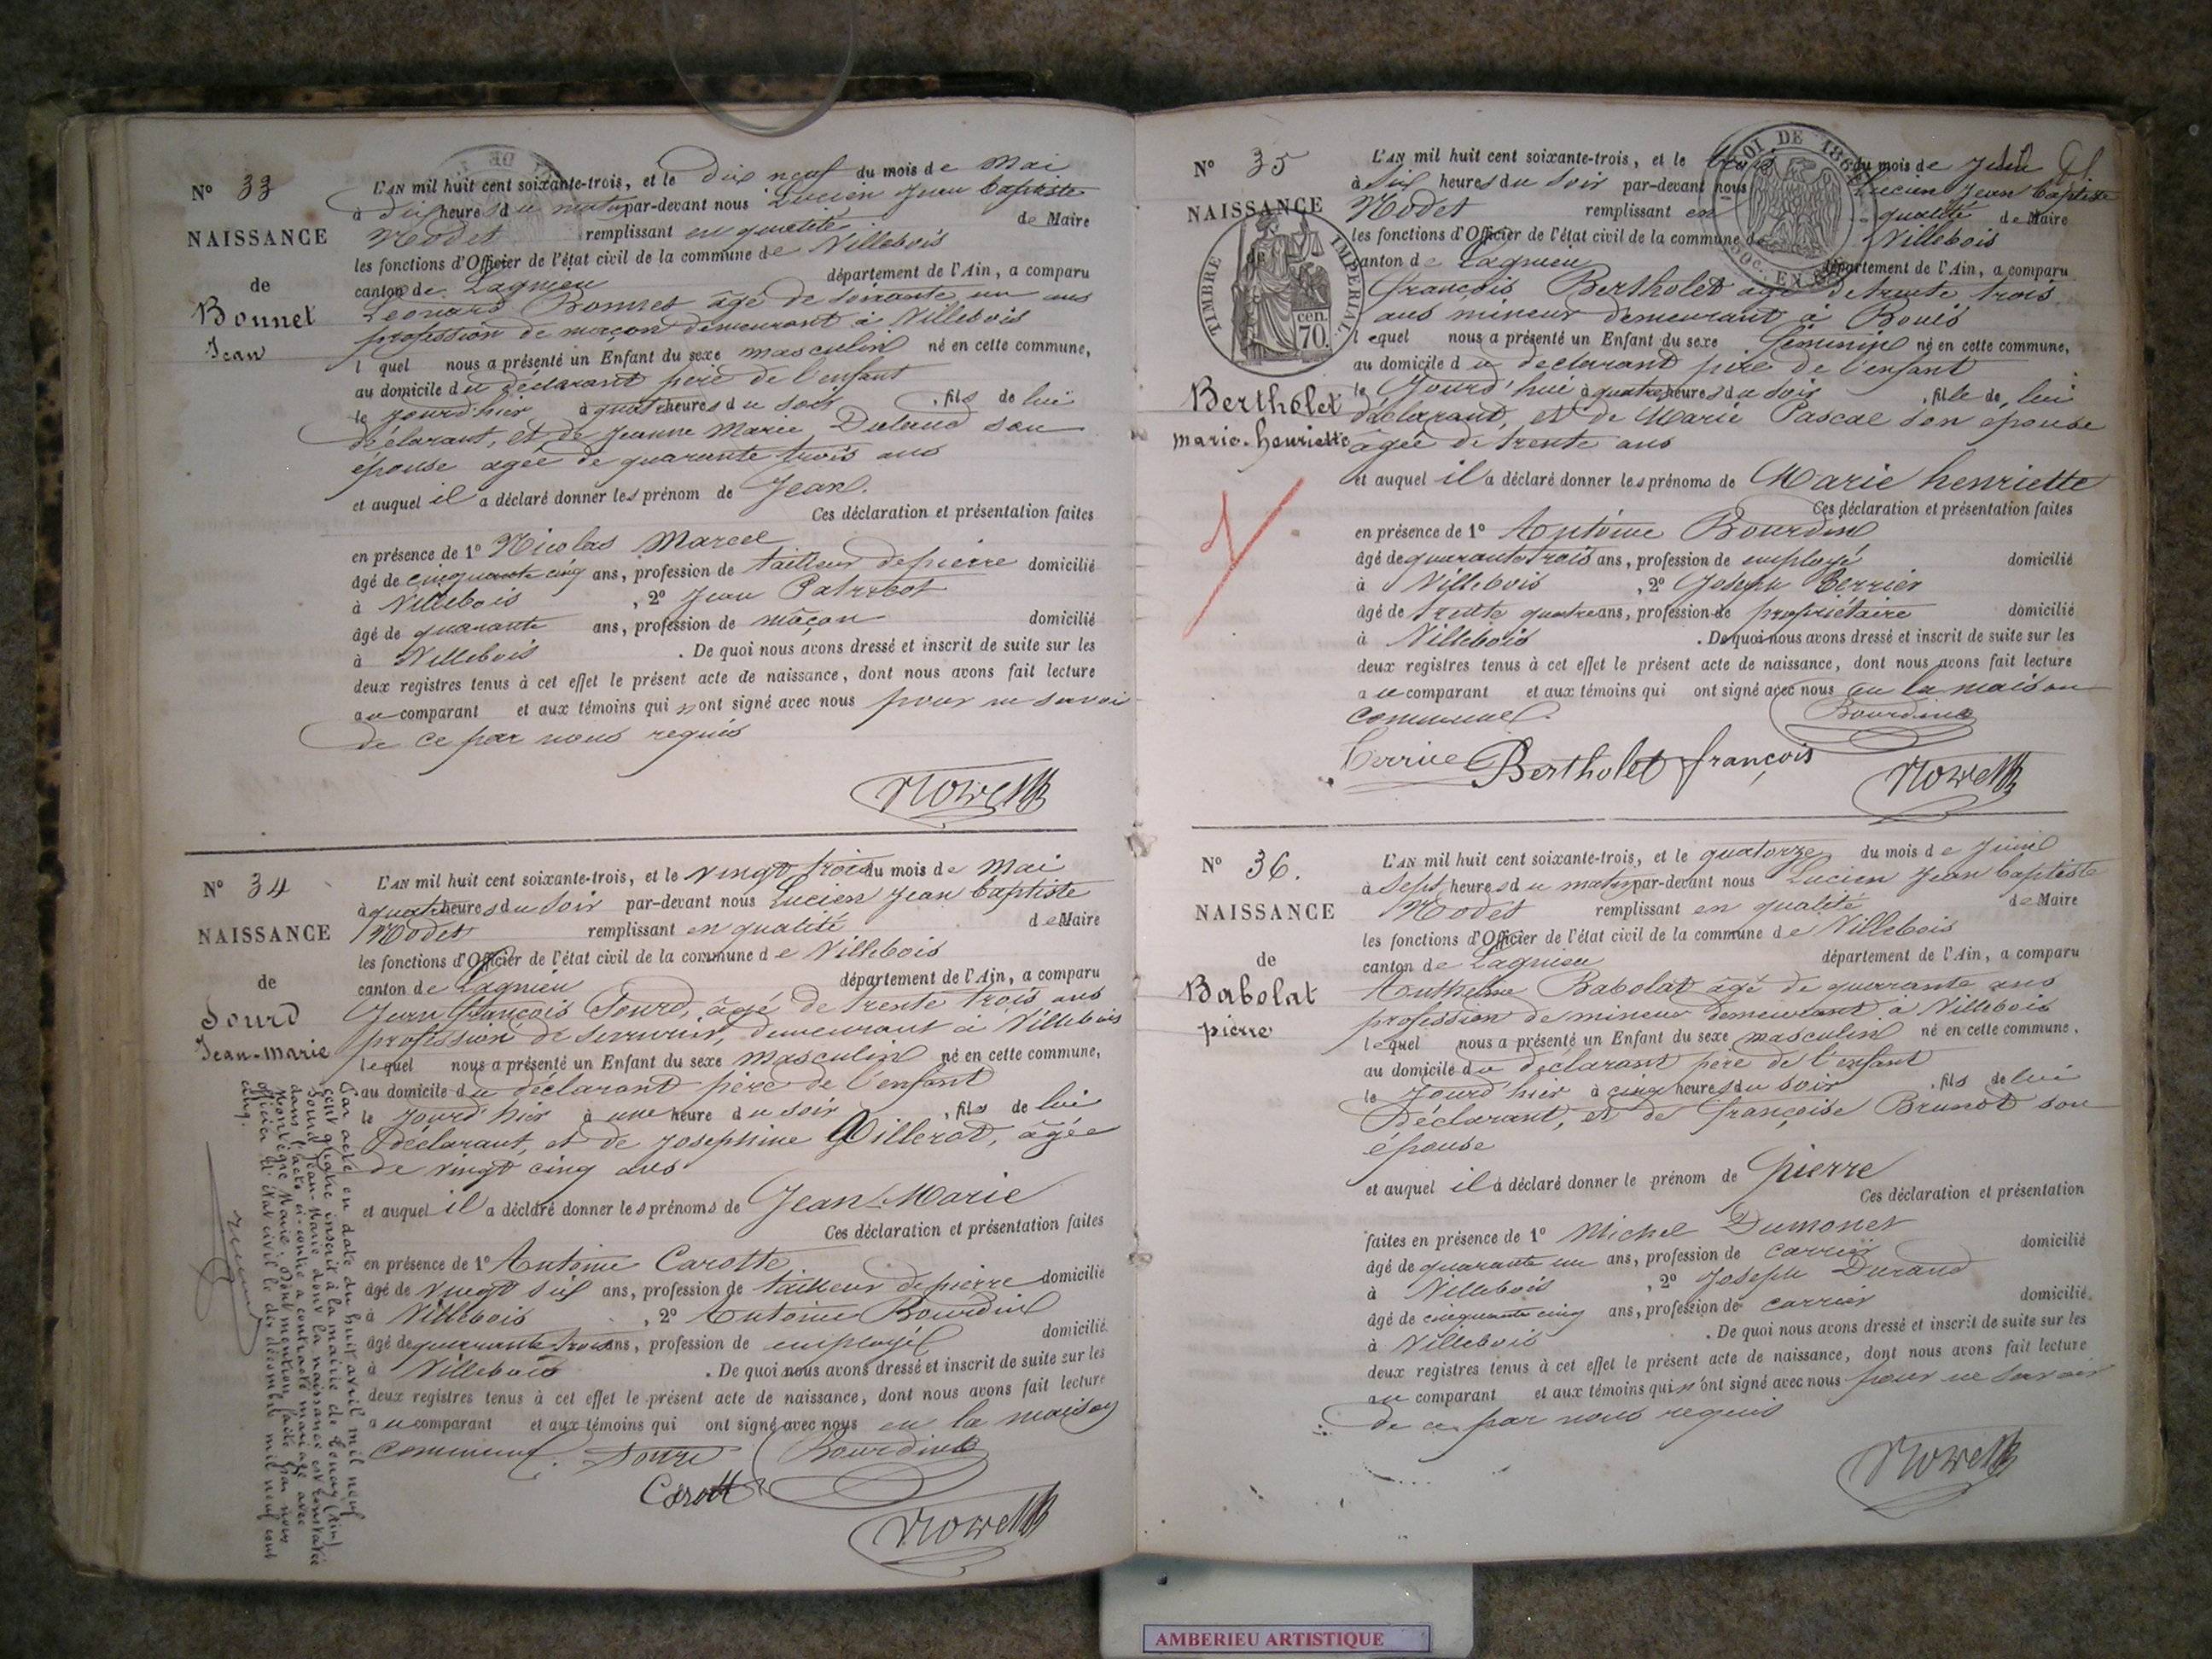 N° 33
NAISSANCE
de
Bonnet
Jean
L'AN mil huit cent soixante-trois, et le dix neuf du mois de Mai
à dix heures du matin par-devant nous Lucien Jean baptiste
Modet remplissant en qualité de Maire
les fonctions d'Officier de l'état civil de la commune de Villebois
canton de Lagnieu département de l'Ain, a comparu
Léonard Bonnet âgé de soixante un ans
profession de maçon demeurant à Villebois
l quel nous a présenté un Enfant du sexe masculin né en cette commune,
au domicile du déclarant père de l'enfant
le jourd'hier à quatre heures du soir, fils de lui
déclarant, et de Jeanne Marie son
épouse agée de quarante trois ans
et auquel il a déclaré donner les prénom de Jean.
Ces déclaration et présentation faites
en présence de 1° Nicolas Marcel
âgé de cinquante cinq ans, profession de tailleur de pierre domicilié
à Villebois, 2° Jean
âgé de quarante ans, profession de maçon domicilié
à Villebois. De quoi nous avons dressé et inscrit de suite sur les
deux registres tenus à cet effet le présent acte de naissance, dont nous avons fait lecture
au comparant et aux témoins qui n'ont signé avec nous pour ne savoir
de ce par nous requis
N° 34
NAISSANCE
de
Sourd
Jean-Marie
L'AN mil huit cent soixante-trois, et le vingt trois du mois de Mai
à quatre heures du soir par-devant nous Lucien Jean baptiste
Modet remplissant en qualité de Maire
les fonctions d'Officier de l'état civil de la commune de Villebois
canton de Lagnieu département de l'Ain, a comparu
Jean françois Sourd, âgé de trente trois ans
profession de serrurier, demeurant à Villebois
lequel nous a présenté un Enfant du sexe masculin né en cette commune,
au domicile du déclarant père de l'enfant
le jourd'hier à une heure du soir, fils de lui
déclarant, et de Josephine Billerot, âgée
de vingt cinq ans
et auquel il a déclaré donner les prénoms de Jean Marie
Ces déclaration et présentation faites
en présence de 1° Antoine Carotte
âgé de vingt six ans, profession de tailleur de pierre domicilié
à Villebois, 2° Antoine Bourdin
âgé de quarante trois ans, profession de employé domicilié
à Villebois. De quoi nous avons dressé et inscrit de suite sur les
deux registres tenus à cet effet le présent acte de naissance, dont nous avons fait lecture
au comparant et aux témoins qui ont signé avec nous en la maison
commune. Sourd Bourdin
Carotte
Par acte en date du huit avril mil neuf
cent quatre inscrit à la mairie de (Ain)
Sourd Jean-Marie dont la naissance est constatée
dans l'acte ci-contre a contracté mariage avec
Marie. Dont mention faite par nous
officier d'état civil le dix décembre mil neuf cent
cinq.
N° 35
NAISSANCE
de
TIMBRE IMPÉRIAL
70 cen.
LOI DE 1862
Berthelet
marie-henriette
L'AN mil huit cent soixante-trois, et le du mois de Juin
à Six heures du soir par-devant nous Lucien Jean baptiste
Modet remplissant en qualité de Maire
les fonctions d'Officier de l'état civil de la commune de Villebois
canton de Lagnieu département de l'Ain, a comparu
françois Bertholet âgé de trente trois
ans mineur demeurant à Bouis
lequel nous a présenté un Enfant du sexe féminin né en cette commune,
au domicile du déclarant père de l'enfant
le Jourd'hui à quatre heures du soir, fille de lui
déclarant, et de Marie Pascal son épouse
âgée de trente ans
et auquel il a déclaré donner les prénoms de Marie henriette
Ces déclaration et présentation faites
en présence de 1° Antoine Bourdin
âgé de quarante trois ans, profession de employé domicilié
à Villebois, 2° Joseph Berrier
âgé de trente quatre ans, profession de propriétaire domicilié
à Villebois. De quoi nous avons dressé et inscrit de suite sur les
deux registres tenus à cet effet le présent acte de naissance, dont nous avons fait lecture
au comparant et aux témoins qui ont signé avec nous en la maison
commune. Bourdin
Bertholet françois
N° 36.
NAISSANCE
de
Babolat
pierre
L'AN mil huit cent soixante-trois, et le quatorze du mois de Juin
à Sept heures du matin par-devant nous Lucien Jean baptiste
Modet remplissant en qualité de Maire
les fonctions d'Officier de l'état civil de la commune de Villebois
canton de Lagnieu département de l'Ain, a comparu
Anthelme Babolat âgé de quarante ans
profession de mineur demeurant à Villebois
lequel nous a présenté un Enfant du sexe masculin né en cette commune,
au domicile du déclarant père de l'enfant
le jourd'hier à cinq heures du soir, fils de lui
déclarant, et de françoise Brunot son
épouse
et auquel il a déclaré donner le prénom de pierre
Ces déclaration et présentation
faites en présence de 1° Michel Dumonet
âgé de quarante un ans, profession de carrier domicilié
à Villebois, 2° Joseph Durand
âgé de cinquante cinq ans, profession de carrier domicilié
à Villebois. De quoi nous avons dressé et inscrit de suite sur les
deux registres tenus à cet effet le présent acte de naissance, dont nous avons fait lecture
au comparant et aux témoins qui n'ont signé avec nous pour ne savoir
de ce par nous requis
AMBERIEU ARTISTIQUE